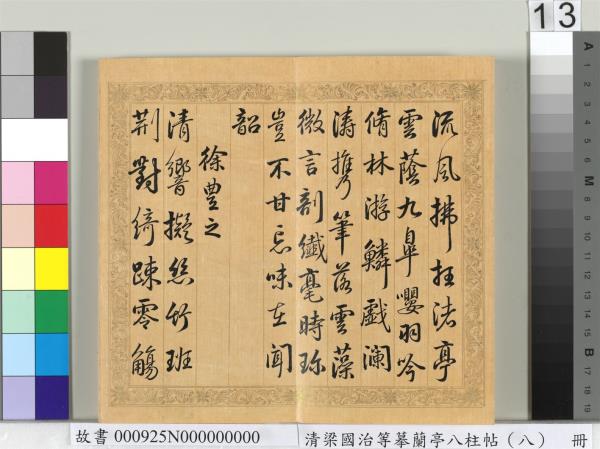 流風拂枉渚亭
雲蔭九皐嚶羽吟
脩林游鱗戲瀾
濤攜筆落雲藻
微言剖纖毫時珍
豈不甘忘味在聞
韶
徐豐之
清響擬絲竹班
荊對綺疎零觴
13
A
1
2
3
4
5
6
M
8
9
10
11
12
13
14
15
B
17
18
19
故書 000925N000000000
清梁國治等摹蘭亭八柱帖（八） 冊